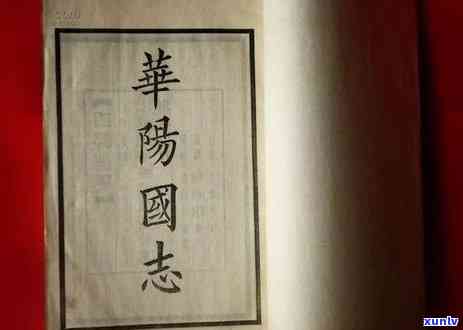 華陽國志
xunlv